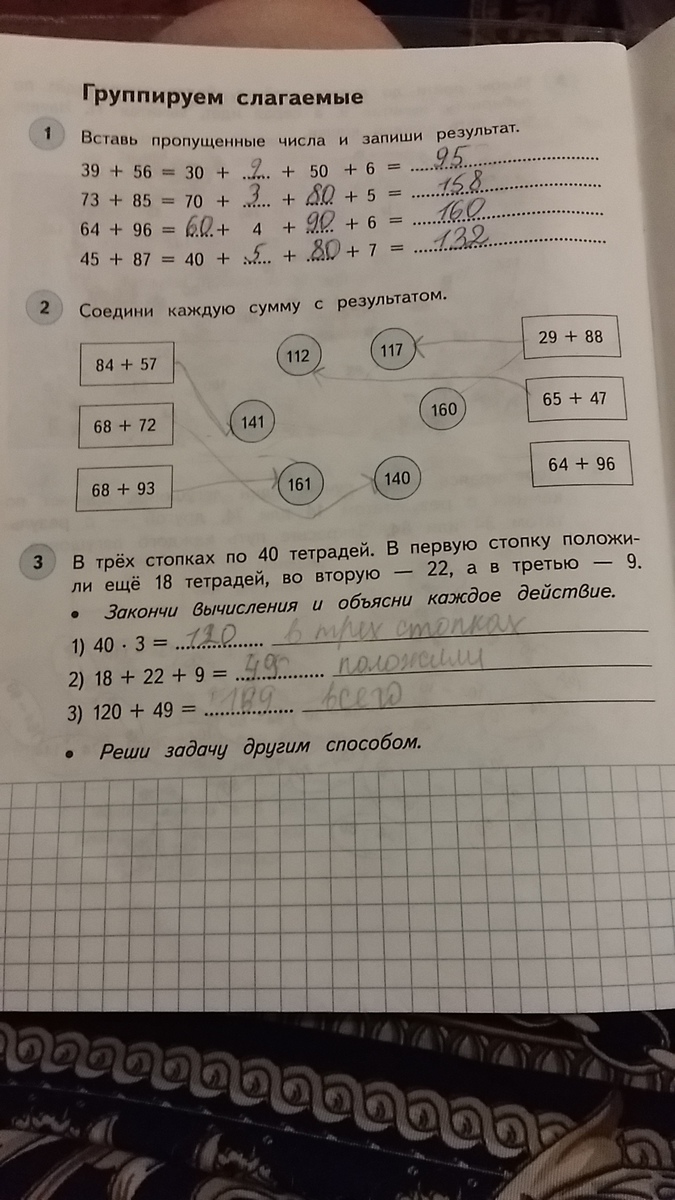 Группируем слагаемые
1 Вставь пропущенные числа и запиши результат.
39 + 56 = 30 + 9 + 50 + 6 = 95
73 + 85 = 70 + 3 + 80 + 5 = 158
64 + 96 = 60 + 4 + 90 + 6 = 160
45 + 87 = 40 + 5 + 80 + 7 = 132
2 Соедини каждую сумму с результатом.
84 + 57 112 117 29 + 88
68 + 72 141 160 65 + 47
68 + 93 161 140 64 + 96
3 В трёх стопках по 40 тетрадей. В первую стопку положи-
ли ещё 18 тетрадей, во вторую — 22, а в третью — 9.
• Закончи вычисления и объясни каждое действие.
1) 40 · 3 = 120 в трех стопках
2) 18 + 22 + 9 = 49 положили
3) 120 + 49 = всего
• Реши задачу другим способом.